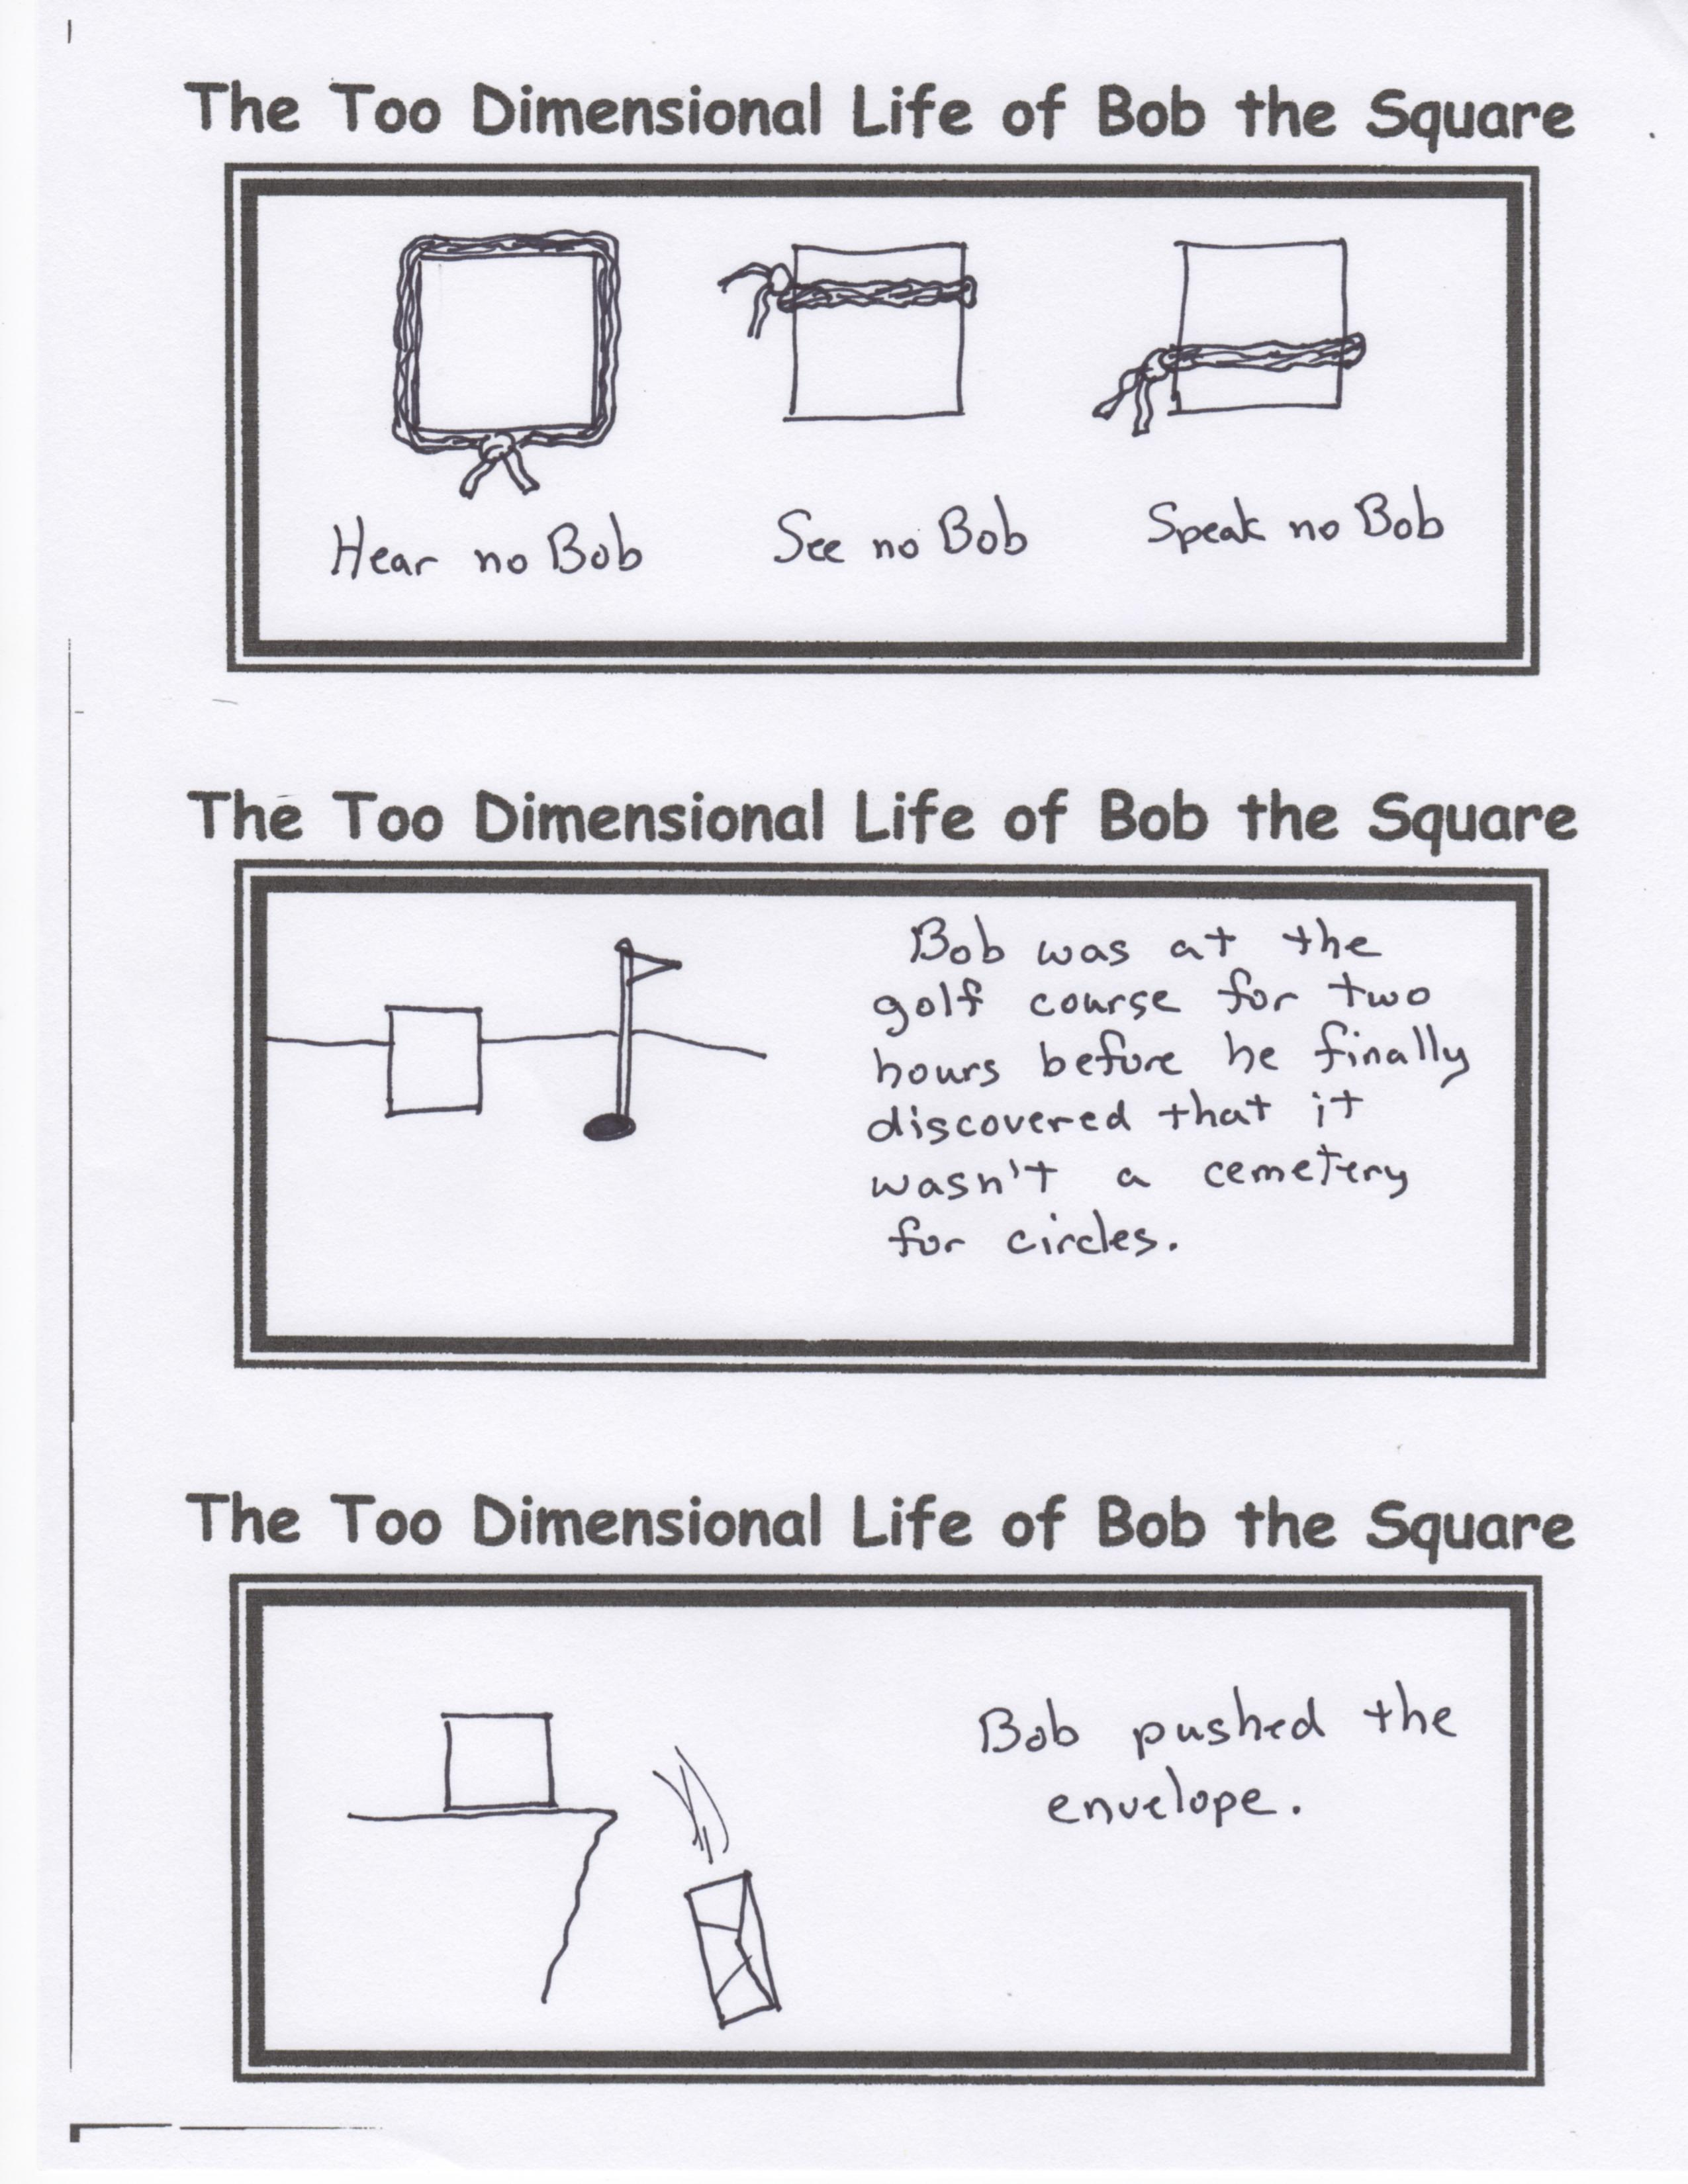 The Too Dimensional Life of Bob the Square
Hear no Bob
See no Bob
Speak no Bob
The Too Dimensional Life of Bob the Square
Bob was at the
golf course for two
hours before he finally
discovered that it
wasn't a cemetery
for circles.
The Too Dimensional Life of Bob the Square
Bob pushed the
envelope.